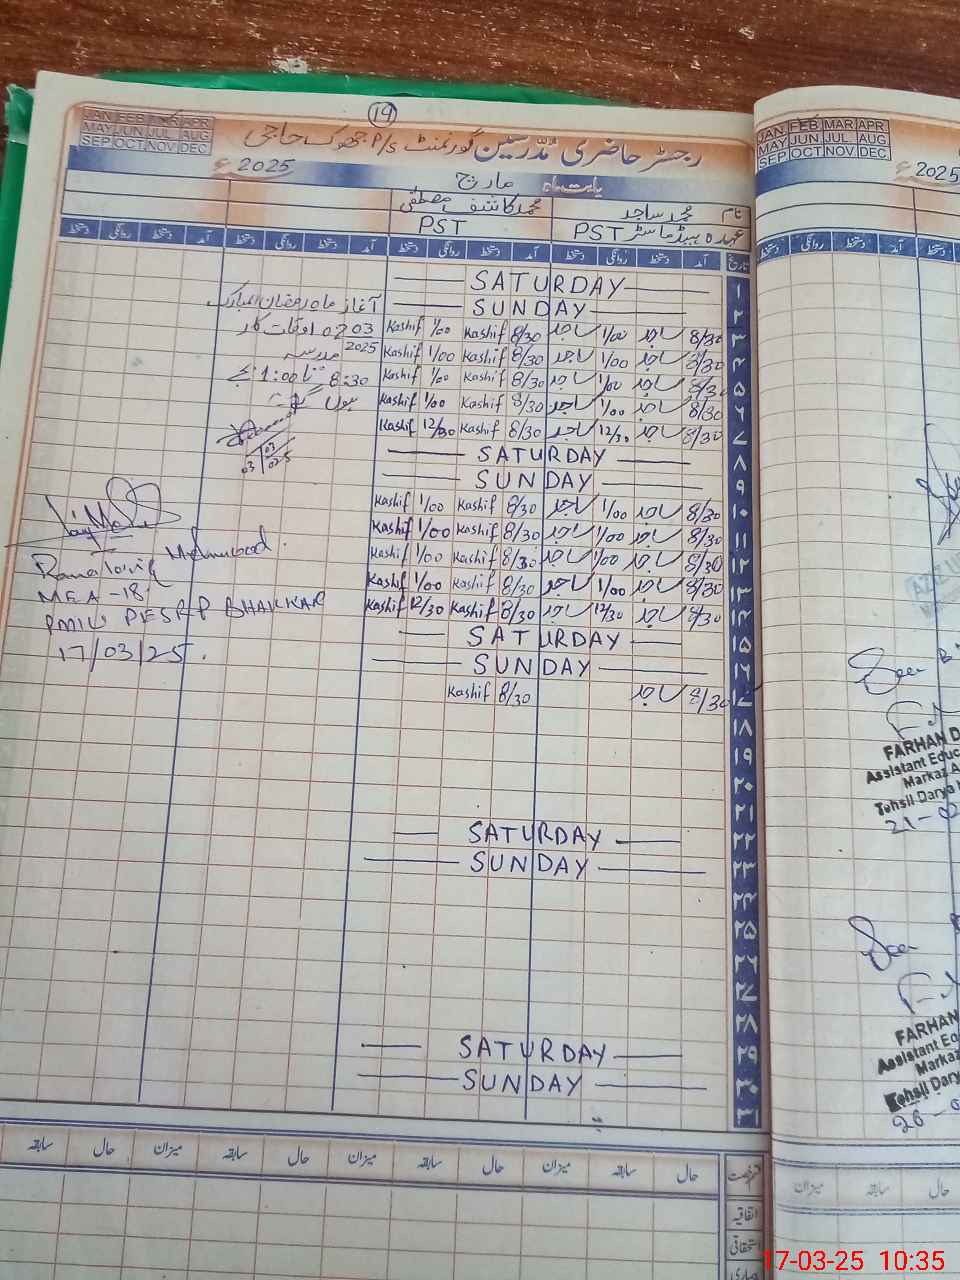 19
JAN FEB MAR APR
MAY JUN JUL AUG
SEP OCT NOV DEC
رجسٹر حاضری مُدرسین گورنمنٹ P/S جھوک حاجی
2025ء
بابت ماہ مارچ
نام محمد ساجد محمد کاشف مصطفٰی
عہدہ ہیڈماسٹر PST PST
تاریخ آمد دستخط روانگی دستخط آمد دستخط روانگی دستخط آمد دستخط روانگی دستخط آمد دستخط روانگی دستخط
۱ SATURDAY
۲ SUNDAY
۳ 8/30 ساجد 1/00 ساجد 8/30 Kashif 1/00 Kashif
۴ 8/30 ساجد 1/00 ساجد 8/30 Kashif 1/00 Kashif
۵ 8/30 ساجد 1/00 ساجد 8/30 Kashif 1/00 Kashif
۶ 8/30 ساجد 1/00 ساجد 8/30 Kashif 1/00 Kashif
۷ 8/30 ساجد 12/30 ساجد 8/30 Kashif 12/30 Kashif
۸ SATURDAY
۹ SUNDAY
۱۰ 8/30 ساجد 1/00 ساجد 8/30 Kashif 1/00 Kashif
۱۱ 8/30 ساجد 1/00 ساجد 8/30 Kashif 1/00 Kashif
۱۲ 8/30 ساجد 1/00 ساجد 8/30 Kashif 1/00 Kashif
۱۳ 8/30 ساجد 1/00 ساجد 8/30 Kashif 1/00 Kashif
۱۴ 8/30 ساجد 12/30 ساجد 8/30 Kashif 12/30 Kashif
۱۵ SATURDAY
۱۶ SUNDAY
۱۷ 8/30 ساجد 8/30 Kashif
۱۸
۱۹
۲۰
۲۱
۲۲ SATURDAY
۲۳ SUNDAY
۲۴
۲۵
۲۶
۲۷
۲۸
۲۹ SATURDAY
۳۰ SUNDAY
۳۱
آغاز ماہ رمضان المبارک
0203 اوقات کار
2025 مدرسہ
8:30 تا 1:00 بجے
ہوں گے
03/03/025
Rana Mehmood
MEA -18
PMIU PESRP BHAKKAR
17/03/25.
حال سابقہ میزان حال سابقہ میزان حال سابقہ میزان حال سابقہ
رخصت
اتفاقیہ
استحقاقی
بیماری
JAN FEB MAR APR
MAY JUN JUL AUG
SEP OCT NOV DEC
2025ء
دستخط روانگی دستخط آمد
Seen
FARHAN
Assistant Educ
Markaz
Tehsil Darya
21-02
Seen
FARHAN
Assistant Ed
Marka
Tehsil Dary
26-0
حال سابقہ میزان
17-03-25 10:35